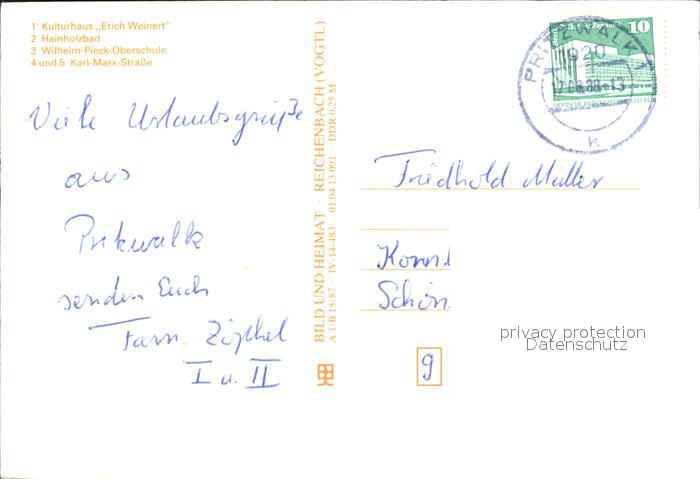 1 Kulturhaus „Erich Weinert"
2 Hainholzbad
3 Wilhelm-Pieck-Oberschule
4 und 5 Karl-Marx-Straße
Viele Urlaubsgrüße
aus
Pritzwalk
senden Euch
Fam. Zöphel
I u. II
BILD UND HEIMAT · REICHENBACH (VOGTL)
A 1/B 15/87 · IV-14-483 · 01 04 13 091 · DDR 0,25 M
10
PRITZWALK 1
1920
12.08.88-13
k
Friedhold Müller
Konra
Schön
9
privacy protection
Datenschutz